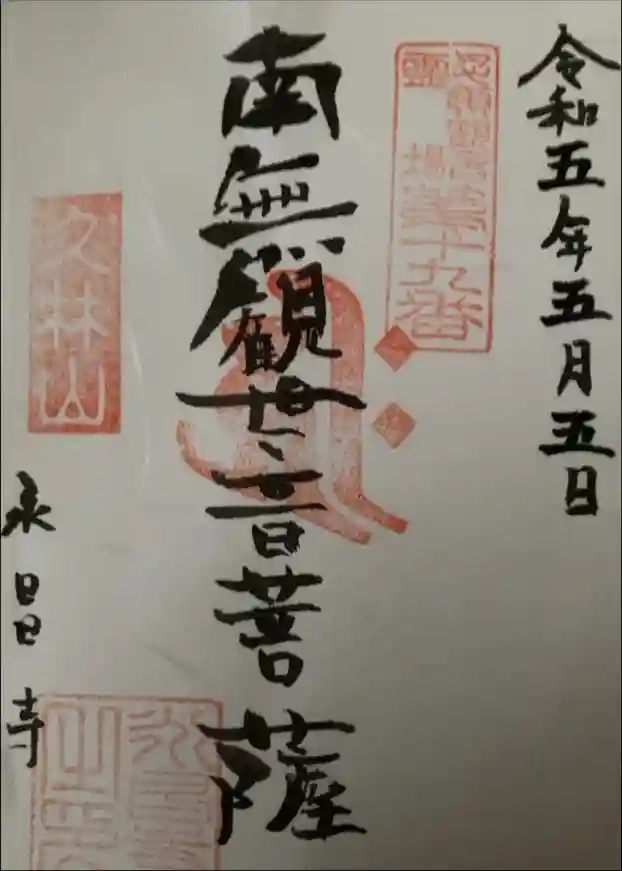 令和五年五月五日
霊場第十九番
南無観世音菩薩
久林山
永昌寺